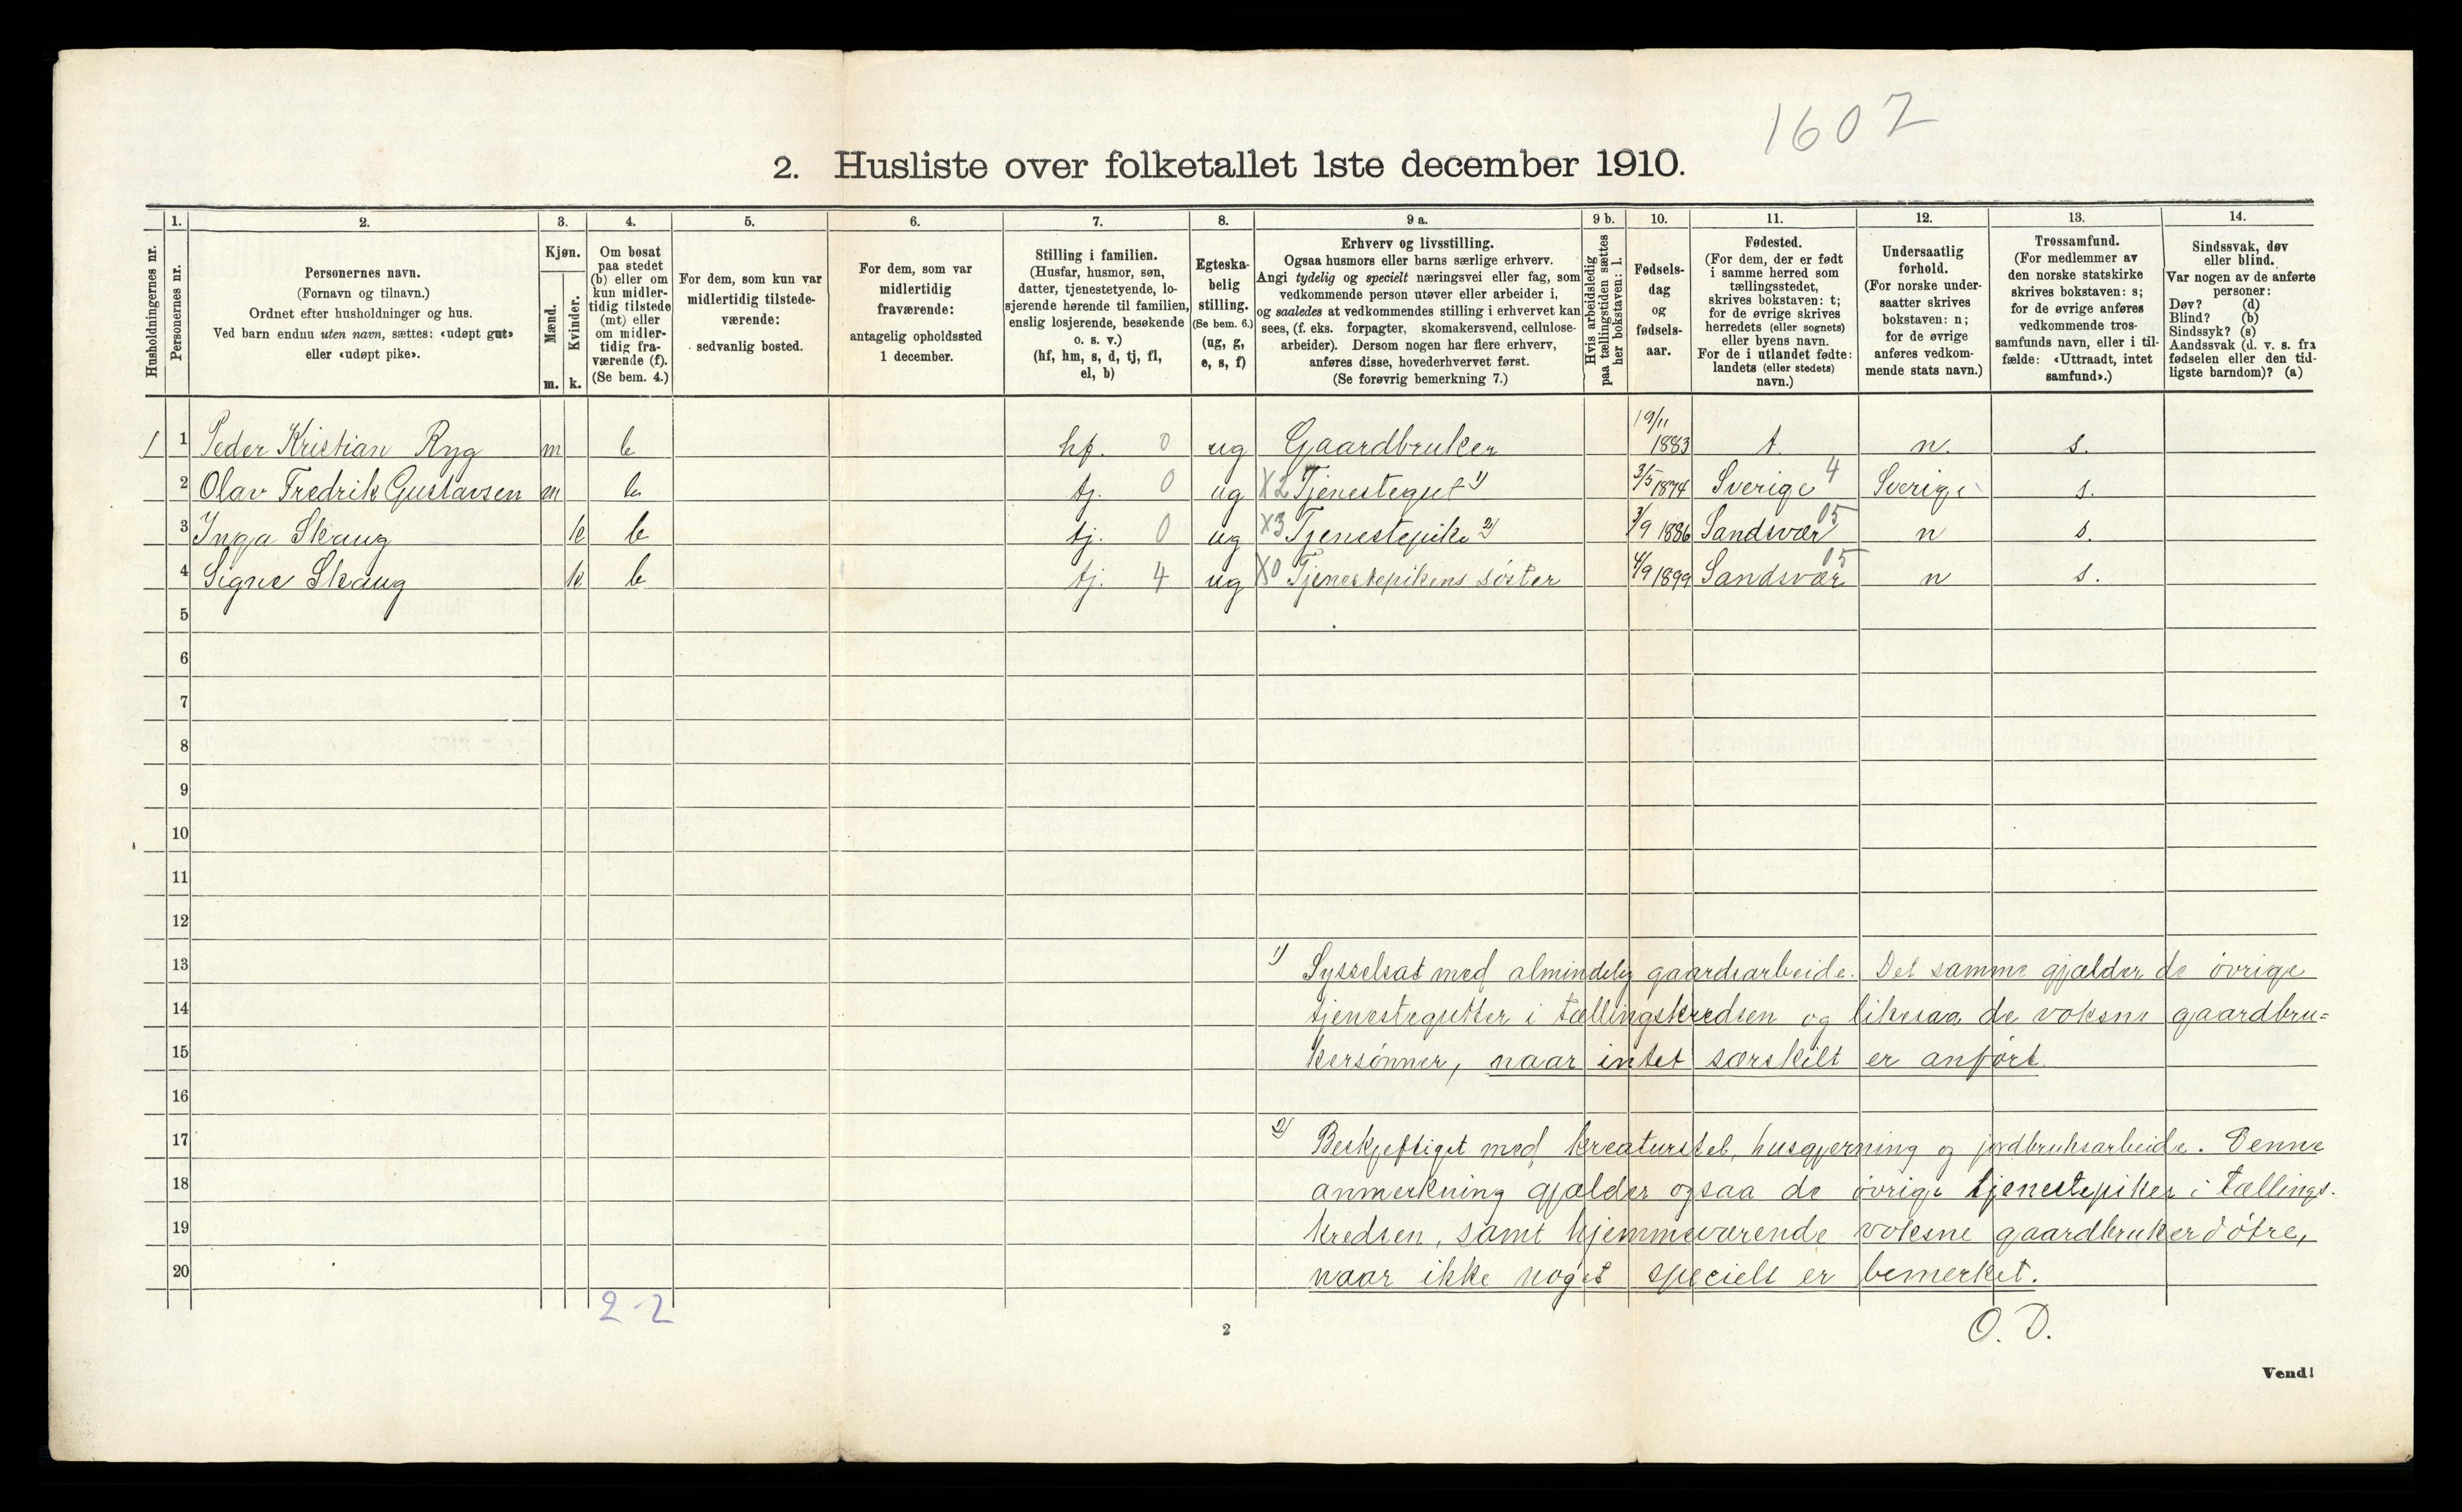 1602
2. Husliste over folketallet 1ste december 1910.
Husholdningernes nr.
1. Personernes nr.
2. Personernes navn. (Fornavn og tilnavn.) Ordnet efter husholdninger og hus. Ved barn endnu uten navn, sættes: «udøpt gut» eller «udøpt pike».
3. Kjøn. Mænd. m. Kvinder. k.
4. Om bosat paa stedet (b) eller om kun midler-tidig tilstede (mt) eller om midler-tidig fra-værende (f). (Se bem. 4.)
5. For dem, som kun var midlertidig tilstede-værende: sedvanlig bosted.
6. For dem, som var midlertidig fraværende: antagelig opholdssted 1 december.
7. Stilling i familien. (Husfar, husmor, søn, datter, tjenestetyende, lo-sjerende hørende til familien, enslig losjerende, besøkende o. s. v.) (hf, hm, s, d, tj, fl, el, b)
8. Egteska-belig stilling. (Se bem. 6.) (ug, g, e, s, f)
9 a. Erhverv og livsstilling. Ogsaa husmors eller barns særlige erhverv. Angi tydelig og specielt næringsvei eller fag, som vedkommende person utøver eller arbeider i, og saaledes at vedkommendes stilling i erhvervet kan sees, (f. eks. forpagter, skomakersvend, cellulose-arbeider). Dersom nogen har flere erhverv, anføres disse, hovederhvervet først. (Se forøvrig bemerkning 7.)
9 b. Hvis arbeidsledig paa tællingstiden sættes her bokstaven: l.
10. Fødsels-dag og fødsels-aar.
11. Fødested. (For dem, der er født i samme herred som tællingsstedet, skrives bokstaven: t; for de øvrige skrives herredets (eller sognets) eller byens navn. For de i utlandet fødte: landets (eller stedets) navn.)
12. Undersaatlig forhold. (For norske under-saatter skrives bokstaven: n; for de øvrige anføres vedkom-mende stats navn.)
13. Trossamfund. (For medlemmer av den norske statskirke skrives bokstaven: s; for de øvrige anføres vedkommende tros-samfunds navn, eller i til-fælde: «Uttraadt, intet samfund».)
14. Sindssvak, døv eller blind. Var nogen av de anførte personer: Døv? (d) Blind? (b) Sindssyk? (s) Aandssvak (d. v. s. fra fødselen eller den tid-ligste barndom)? (a)
1 1 Peder Kristian Ryg m b hf. 0 ug Gaardbruker 19/11 1883 t. n. s.
2 Olav Fredrik Gustavsen m b tj. 0 ug X2 Tjenestegut 1) 3/5 1874 Sverige 4 Sverige s.
3 Inga Skaug k b tj. 0 ug X3 Tjenestepike 2) 3/9 1886 Sandsvær 05 n s.
4 Signe Skaug k b tj. 4 ug X0 Tjenestepikens søster 4/9 1899 Sandsvær 05 n s.
5
6
7
8
9
10
11
12
13 1) Sysselsat med almindelig gaardsarbeide. Det samme gjælder de øvrige
14 tjenestegutter i tællingskredsen og likesaa de voksne gaardbru=
15 kersønner, naar intet særskilt er anført.
16
17 2) Beskjeftiget med kreaturstel, husgjerning og jordbruksarbeide. Denne
18 anmerkning gjælder ogsaa de øvrige tjenestepiker i tællings-
19 kredsen, samt hjemmeværende voksne gaardbrukerdøtre,
20 naar ikke noget specielt er bemerket.
2 - 2
2
O. D.
Vend!